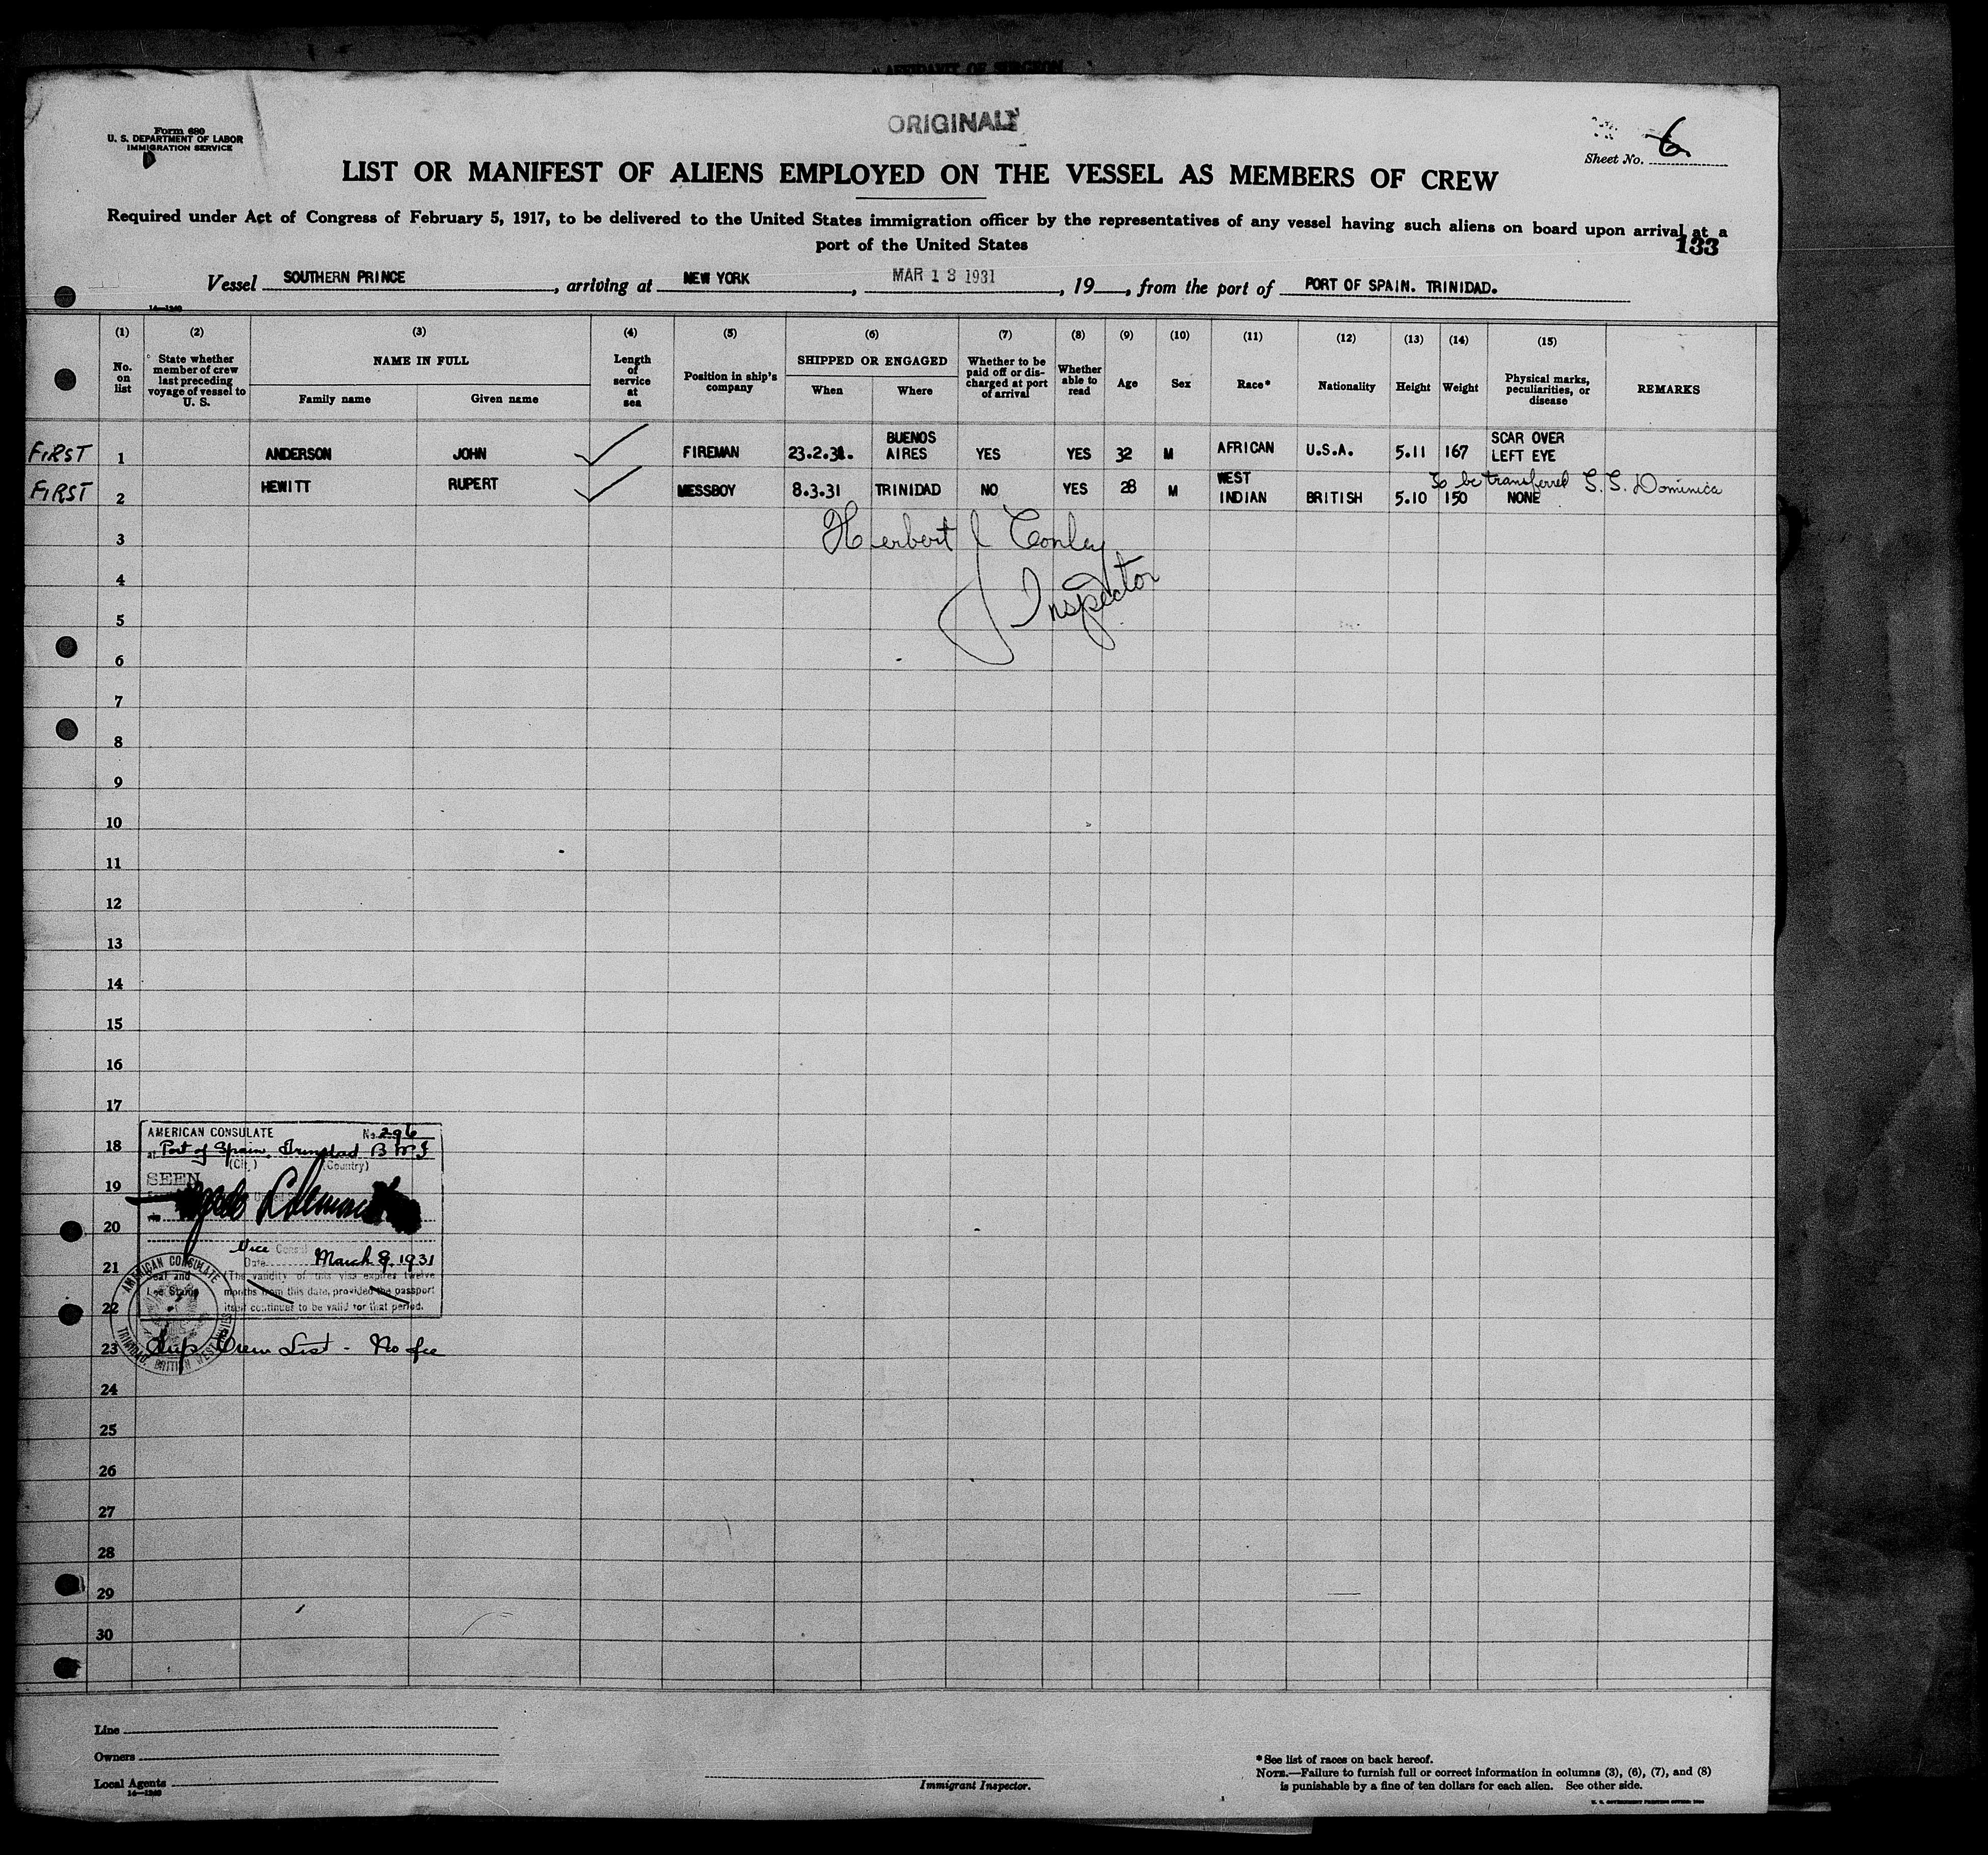 AFFIDAVIT OF SURGEON
ORIGINAL
Form 680
U. S. DEPARTMENT OF LABOR
IMMIGRATION SERVICE
Sheet No. 6
LIST OR MANIFEST OF ALIENS EMPLOYED ON THE VESSEL AS MEMBERS OF CREW
Required under Act of Congress of February 5, 1917, to be delivered to the United States immigration officer by the representatives of any vessel having such aliens on board upon arrival at a
port of the United States
133
Vessel SOUTHERN PRINCE, arriving at NEW YORK, MAR 13 1931, 19, from the port of PORT OF SPAIN. TRINIDAD.
14—1240
(1) (2) (3) (4) (5) (6) (7) (8) (9) (10) (11) (12) (13) (14) (15)
No. on list
State whether member of crew last preceding voyage of vessel to U. S.
NAME IN FULL
Family name Given name
Length of service at sea
Position in ship's company
SHIPPED OR ENGAGED
When Where
Whether to be paid off or discharged at port of arrival
Whether able to read
Age
Sex
Race*
Nationality
Height
Weight
Physical marks, peculiarities, or disease
REMARKS
FIRST 1 ANDERSON JOHN ✓ FIREMAN 23.2.31. BUENOS AIRES YES YES 32 M AFRICAN U.S.A. 5.11 167 SCAR OVER LEFT EYE
To be transferred S.S. Dominica
FIRST 2 HEWITT RUPERT ✓ MESSBOY 8.3.31 TRINIDAD NO YES 28 M WEST INDIAN BRITISH 5.10 150 NONE
3 Herbert J Conley
4
Inspector
5
6
7
8
9
10
11
12
13
14
15
16
17
AMERICAN CONSULATE No. 296
18 at Port of Spain, Trinidad B W I
(City) (Country)
SEEN
19
20
Vice Consul
Date March 9, 1931
21
(The validity of this visa expires twelve
months from this date, provided the passport
itself continues to be valid for that period.
Seal and
Fee Stamp
AMERICAN CONSULATE
TRINIDAD, BRITISH WEST INDIES
22
23 Ships Crew List - No fee
24
25
26
27
28
29
30
Line
Owners
Local Agents
14—1240
Immigrant Inspector.
*See list of races on back hereof.
NOTE.—Failure to furnish full or correct information in columns (3), (6), (7), and (8)
is punishable by a fine of ten dollars for each alien. See other side.